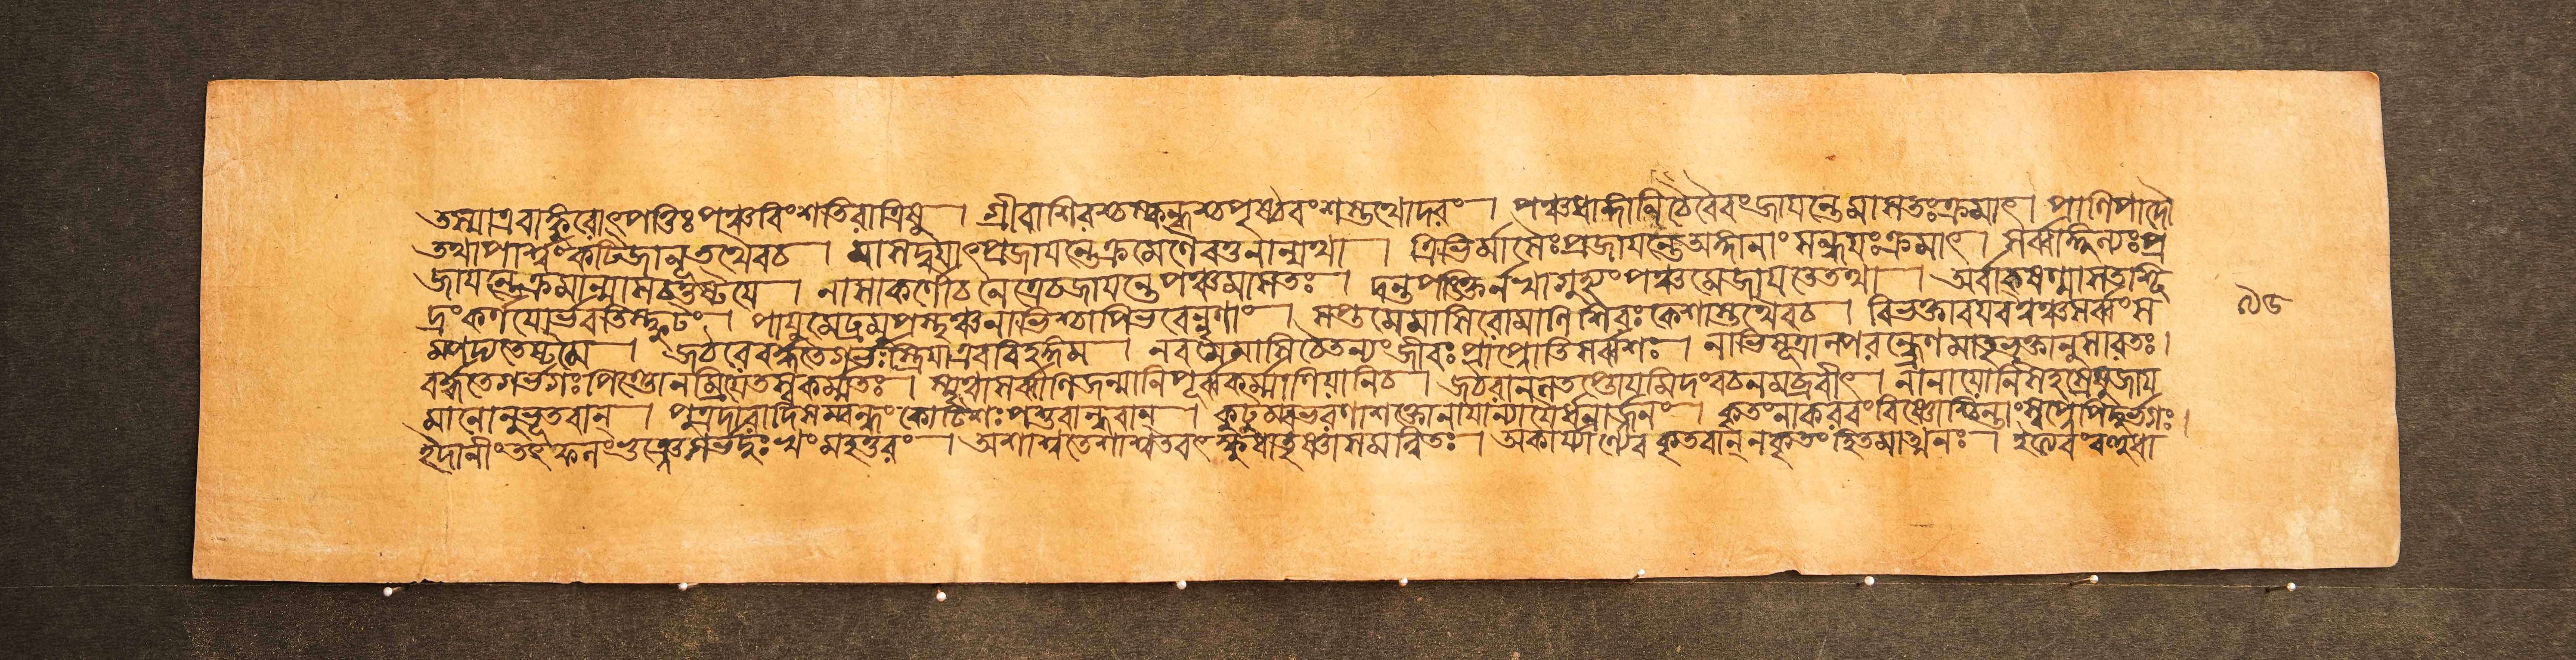 তস্মাএবাঙ্কুরোৎপত্তিঃপঞ্চবিংশতিরাত্রিষু । গ্রীবাশিরশ্চস্কন্ধশ্চপৃষ্ঠবংশস্তথোদরং । পঞ্চধাঙ্গানিচৈবৈবংজায়ন্তেমাসতঃক্রমাৎ । পাণিপাদৌ
তথাপার্শ্বংকটিজানুতথৈবচ । মাসদ্বয়াৎপ্রজায়ন্তেক্রমেণৈবতুনান্যথা । ত্রিভির্মাসৈঃপ্রজায়ন্তেঅঙ্গানাংসন্ধয়ঃক্রমাৎ । সর্ব্বাঙ্গুল্যঃপ্র
জায়ন্তেক্রমান্মাসচতুষ্টয়ে । নাসাকর্ণৌচনেত্রেচজায়ন্তেপঞ্চমাসতঃ । দন্তপঙ্ক্তির্নখাগুহ্যংপঞ্চমেজায়তেতথা । অর্বাকষণ্মাসতশ্ছি
দ্রংকর্ণয়োর্ভবতিস্ফুটং । পায়ুমেঢ্রমুপস্থঞ্চনাভিশ্চাপিভবেন্নৃণাং । সপ্তমেমাসিরোমাণিশিরঃকেশাস্তথৈবচ । বিভক্তাবয়বত্বঞ্চসর্ব্বংস
ম্পদ্যতেষ্টমে । জঠরেবর্দ্ধতেগর্ভঃস্ত্রিয়াএববিহঙ্গম । নবমেমাসিচৈতন্যংজীবঃপ্রাপ্নোতিসর্ব্বশঃ । নাভিসূত্রাল্পরন্ধ্রেণমাতৃভুক্তান্নসারতঃ।
বর্দ্ধতেগর্ভগঃপিণ্ডোনম্রিয়েতস্বকর্ম্মতঃ । স্মৃত্বাসর্ব্বাণিজন্মানিপূর্ব্বকর্ম্মাণিয়ানিচ । জঠরানলতপ্তোয়মিদংবচনমব্রবীৎ । নানায়োনিসহস্রেষুজায়
মানোনুভূতবান্ । পুত্রদারাদিসম্বন্ধংকোটিশঃপশুবান্ধবান্ । কুটুম্বভরণাশক্তোন্যায়ান্যায়ৈর্ধনার্জনং । কৃতংনাকরবংবিষ্ণোশ্চিন্তাংস্বপ্নেপিদুর্ভগঃ।
ইদানীংতৎফলংভুঞ্জেগর্ভদুঃখংমহত্তরং । অশাশ্বতেশাশ্বতবৎক্ষুধাতৃষ্ণাসমন্বিতঃ । অকার্য্যাণ্যেবকৃতবান্নকৃতংহিতমাত্মনঃ । ইত্যেবংবহুধা